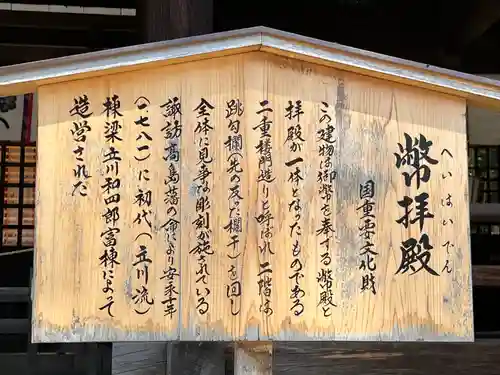 へいはいでん
幣拝殿
国重要文化財
この建物は御幣を奉する幣殿と
拝殿が一体となったものである
二重楼門造りと呼ばれ二階は
跳勾欄(先の反った欄干)を回し
全体に見事な彫刻が施されている
諏訪高島藩の命により安永十年
(一七八一)に初代立川流
棟梁立川和四郎富棟によって
造営された